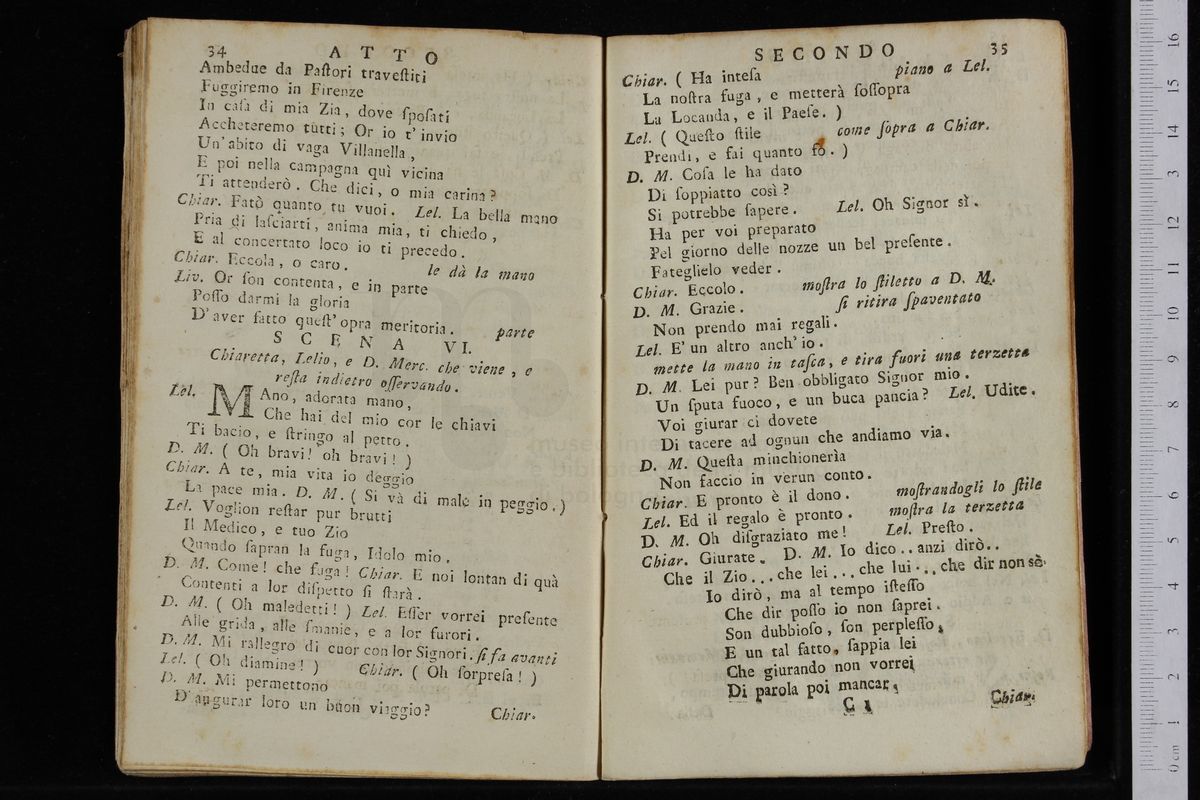 34 ATTO
Ambedue da Paſtori traveſtiti
Fuggiremo in Firenze
In caſa di mia Zia, dove ſpoſati
Accheteremo tutti; Or io t' invio
Un'abito di vaga Villanella,
E poi nella campagna quì vicina
Ti attenderò. Che dici, o mia carina?
Chiar. Fatò quanto tu vuoi. Lel. La bella mano
Pria di laſciarti, anima mia, ti chiedo,
E al concertato loco io ti precedo.
Chiar. Eccola, o caro. le dà la mano
Liv. Or ſon contenta, e in parte
Poſſo darmi la gloria
D'aver fatto queſt' opra meritoria. parte
SCENA VI.
Chiaretta, Lelio, e D. Merc. che viene, e
reſta indietro oſſervando.
Lel. MAno, adorata mano,
Che hai del mio cor le chiavi
Ti bacio, e ſtringo al petto.
D. M. ( Oh bravi! oh bravi! )
Chiar. A te, mia vita io deggio
La pace mia. D. M. ( Si và di male in peggio.)
Lel. Voglion reſtar pur brutti
Il Medico, e tuo Zio
Quando ſapran la fuga, Idolo mio.
D. M. Come! che fuga! Chiar. E noi lontan di quà
Contenti a lor diſpetto ſi ſtarà.
D. M. ( Oh maledetti! ) Lel. Eſſer vorrei preſente
Alle grida, alle ſmanie, e a lor furori.
D. M. Mi rallegro di cuor con lor Signori. ſi fa avanti
Lel. ( Oh diamine! ) Chiar. ( Oh ſorpreſa! )
D. M. Mi permettono
D'augurar loro un buon viaggio? Chiar.
SECONDO 35
Chiar. ( Ha inteſa piano a Lel.
La noſtra fuga, e metterà ſoſſopra
La Locanda, e il Paeſe. )
Lel. ( Queſto ſtile come ſopra a Chiar.
Prendi, e fai quanto fo. )
D. M. Coſa le ha dato
Di ſoppiatto così?
Si potrebbe ſapere. Lel. Oh Signor sì.
Ha per voi preparato
Pel giorno delle nozze un bel preſente.
Fateglielo veder.
Chiar. Eccolo. moſtra lo ſtiletto a D. M.
D. M. Grazie. ſi ritira ſpaventato
Non prendo mai regali.
Lel. E' un altro anch' io.
mette la mano in taſca, e tira fuori una terzetta
D. M. Lei pur? Ben obbligato Signor mio.
Un ſputa fuoco, e un buca pancia? Lel. Udite.
Voi giurar ci dovete
Di tacere ad ognun che andiamo via.
D. M. Queſta minchionerìa
Non faccio in verun conto.
Chiar. E pronto è il dono. moſtrandogli lo ſtile
Lel. Ed il regalo è pronto. moſtra la terzetta
D. M. Oh diſgraziato me! Lel. Preſto.
Chiar. Giurate. D. M. Io dico.. anzi dirò..
Che il Zio... che lei... che lui... che dir non sè.
Io dirò, ma al tempo iſteſſo
Che dir poſſo io non ſaprei.
Son dubbioſo, ſon perpleſſo,
E un tal fatto, ſappia lei
Che giurando non vorrei
Di parola poi mancar.
C 2 Chiar.